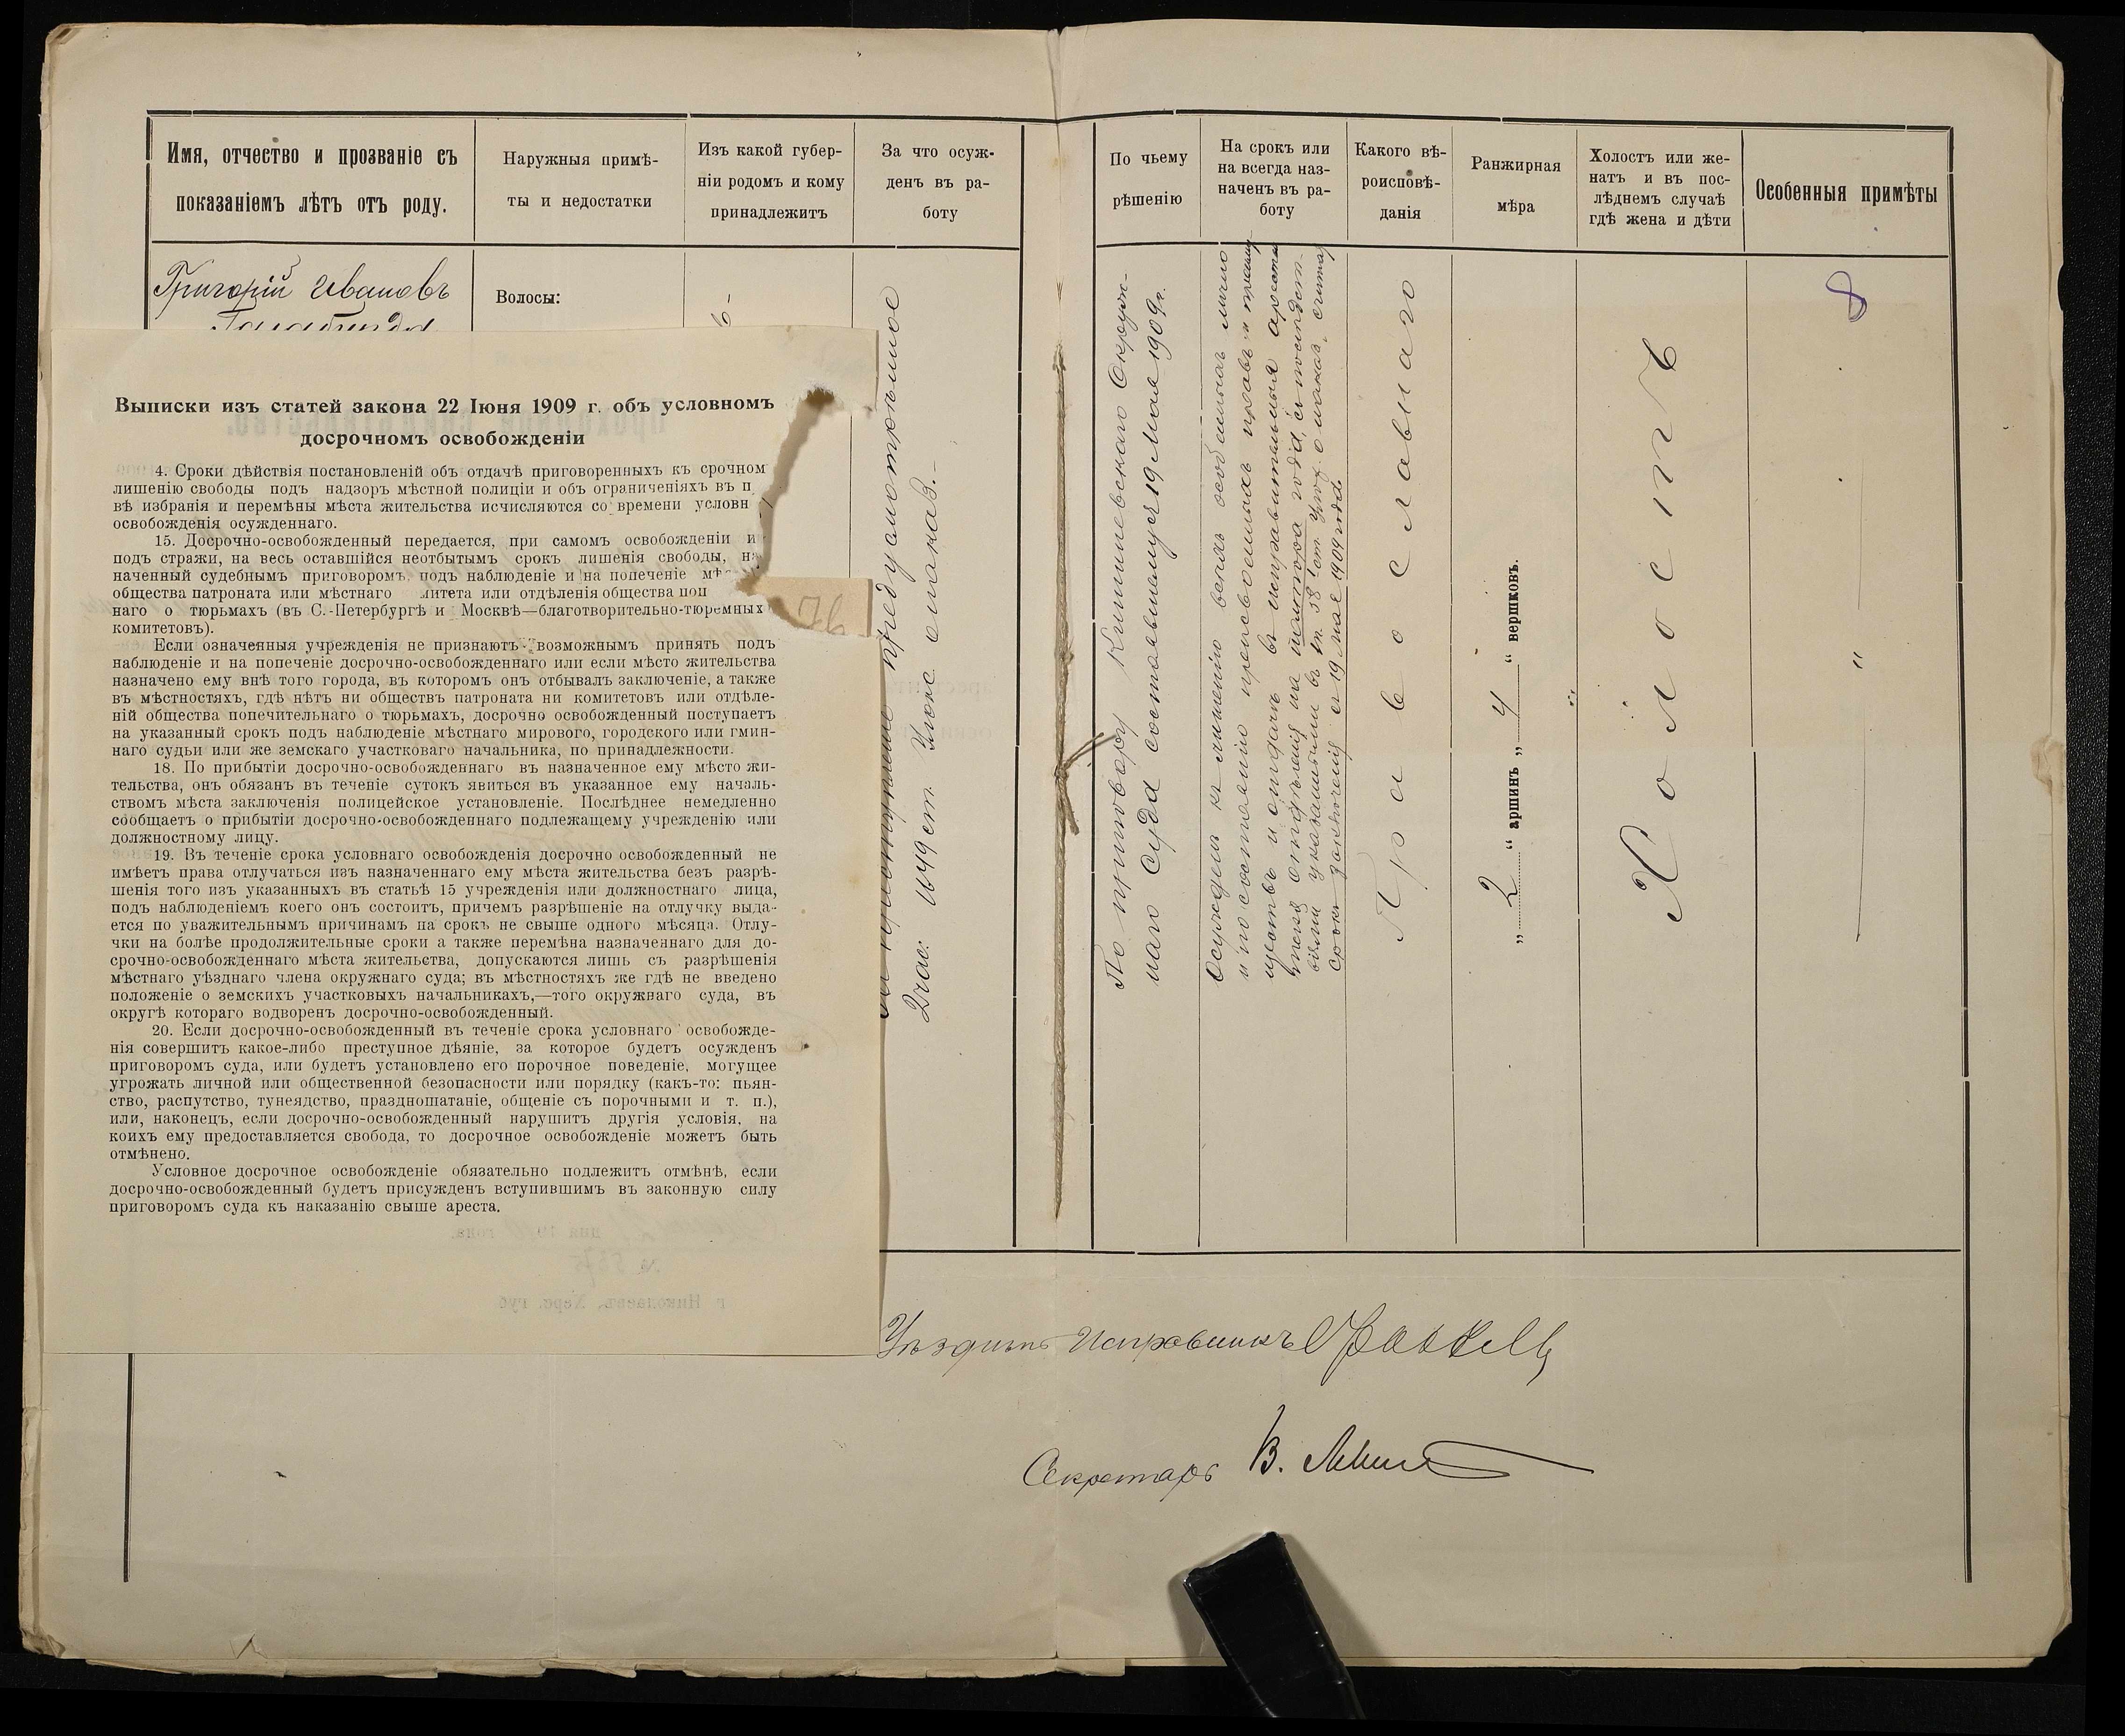 Имя, отчество и прозваніе съ
показаніемъ лѣтъ отъ роду.
Наружныя примѣ-
ты и недостатки
Изъ какой губер-
ніи родомъ и кому
принадлежитъ
За что осуж-
денъ въ ра-
боту
По чьему
рѣшенію
На срокъ или
на всегда наз-
наченъ въ ра-
боту
Какого вѣ-
роисповѣ-
данія
Ранжирная
мѣра
Холостъ или же-
натъ и въ пос-
лѣднемъ случаѣ
гдѣ жена и дѣти
Особенныя примѣты
Григорій Ивановъ
Волосы:
8
Выписки изъ статей закона 22 Іюня 1909 г. объ условномъ
досрочномъ освобожденіи
4. Сроки дѣйствія постановленій объ отдачѣ приговоренныхъ къ срочном
лишенію свободы подъ надзоръ мѣстной полиціи и объ ограниченіяхъ въ п
вѣ избранія и перемѣны мѣста жительства исчисляются со времени условн
освобожденія осужденнаго.
15. Досрочно-освобожденный передается, при самомъ освобожденіи и
подъ стражи, на весь оставшійся неотбытымъ срокъ лишенія свободы, н
наченный судебнымъ приговоромъ, подъ наблюденіе и на попеченіе мѣс
общества патроната или мѣстнаго митета или отдѣленія общества поп
наго о тюрьмахъ (въ С.-Петербургѣ и Москвѣ—благотворительно-тюремныхъ
комитетовъ).
Если означенныя учрежденія не признаютъ возможнымъ принять подъ
наблюденіе и на попеченіе досрочно-освобожденнаго или если мѣсто жительства
назначено ему внѣ того города, въ которомъ онъ отбывалъ заключеніе, а также
въ мѣстностяхъ, гдѣ нѣтъ ни обществъ патроната ни комитетовъ или отдѣле-
ній общества попечительнаго о тюрьмахъ, досрочно освобожденный поступаетъ
на указанный срокъ подъ наблюденіе мѣстнаго мирового, городского или гмин-
наго судьи или же земскаго участковаго начальника, по принадлежности.
18. По прибытіи досрочно-освобожденнаго въ назначенное ему мѣсто жи-
тельства, онъ обязанъ въ теченіе сутокъ явиться въ указанное ему началь-
ствомъ мѣста заключенія полицейское установленіе. Послѣднее немедленно
сообщаетъ о прибытіи досрочно-освобожденнаго подлежащему учрежденію или
должностному лицу.
19. Въ теченіе срока условнаго освобожденія досрочно освобожденный не
имѣетъ права отлучаться изъ назначеннаго ему мѣста жительства безъ разрѣ-
шенія того изъ указанныхъ въ статьѣ 15 учрежденія или должностнаго лица,
подъ наблюденіемъ коего онъ состоитъ, причемъ разрѣшеніе на отлучку выда-
ется по уважительнымъ причинамъ на срокъ не свыше одного мѣсяца. Отлу-
чки на болѣе продолжительные сроки а также перемѣна назначеннаго для до-
срочно-освобожденнаго мѣста жительства, допускаются лишь съ разрѣшенія
мѣстнаго уѣзднаго члена окружнаго суда; въ мѣстностяхъ же гдѣ не введено
положеніе о земскихъ участковыхъ начальникахъ,—того окружнаго суда, въ
округѣ котораго водворенъ досрочно-освобожденный.
20. Если досрочно-освобожденный въ теченіе срока условнаго освобожде-
нія совершитъ какое-либо преступное дѣяніе, за которое будетъ осужденъ
приговоромъ суда, или будетъ установлено его порочное поведеніе, могущее
угрожать личной или общественной безопасности или порядку (какъ-то: пьян-
ство, распутство, тунеядство, праздношатаніе, общеніе съ порочными и т. п.),
или, наконецъ, если досрочно-освобожденный нарушитъ другія условія, на
коихъ ему предоставляется свобода, то досрочное освобожденіе можетъ быть
отмѣнено.
Условное досрочное освобожденіе обязательно подлежитъ отмѣнѣ, если
досрочно-освобожденный будетъ присужденъ вступившимъ въ законную силу
приговоромъ суда къ наказанію свыше ареста.
преступленіе предусмотрѣнное
2 час. 1649 ст. Улож. о наказ.
По приговору Кишиневскаго Окруж-
наго Суда состоявшемуся 19 Мая 1909 г.
Осужденъ къ лишенію всѣхъ особенныхъ лично
и по состоянію присвоенныхъ правъ и преиму
ществъ и отдачѣ въ исправительныя арестан
Срокъ заключенія съ 19 мая 1909 года
Православнаго
„ 2 “ аршинъ „ 4 “ вершковъ.
Холостъ
"
Уѣздный Исправникъ
Секретарь В.